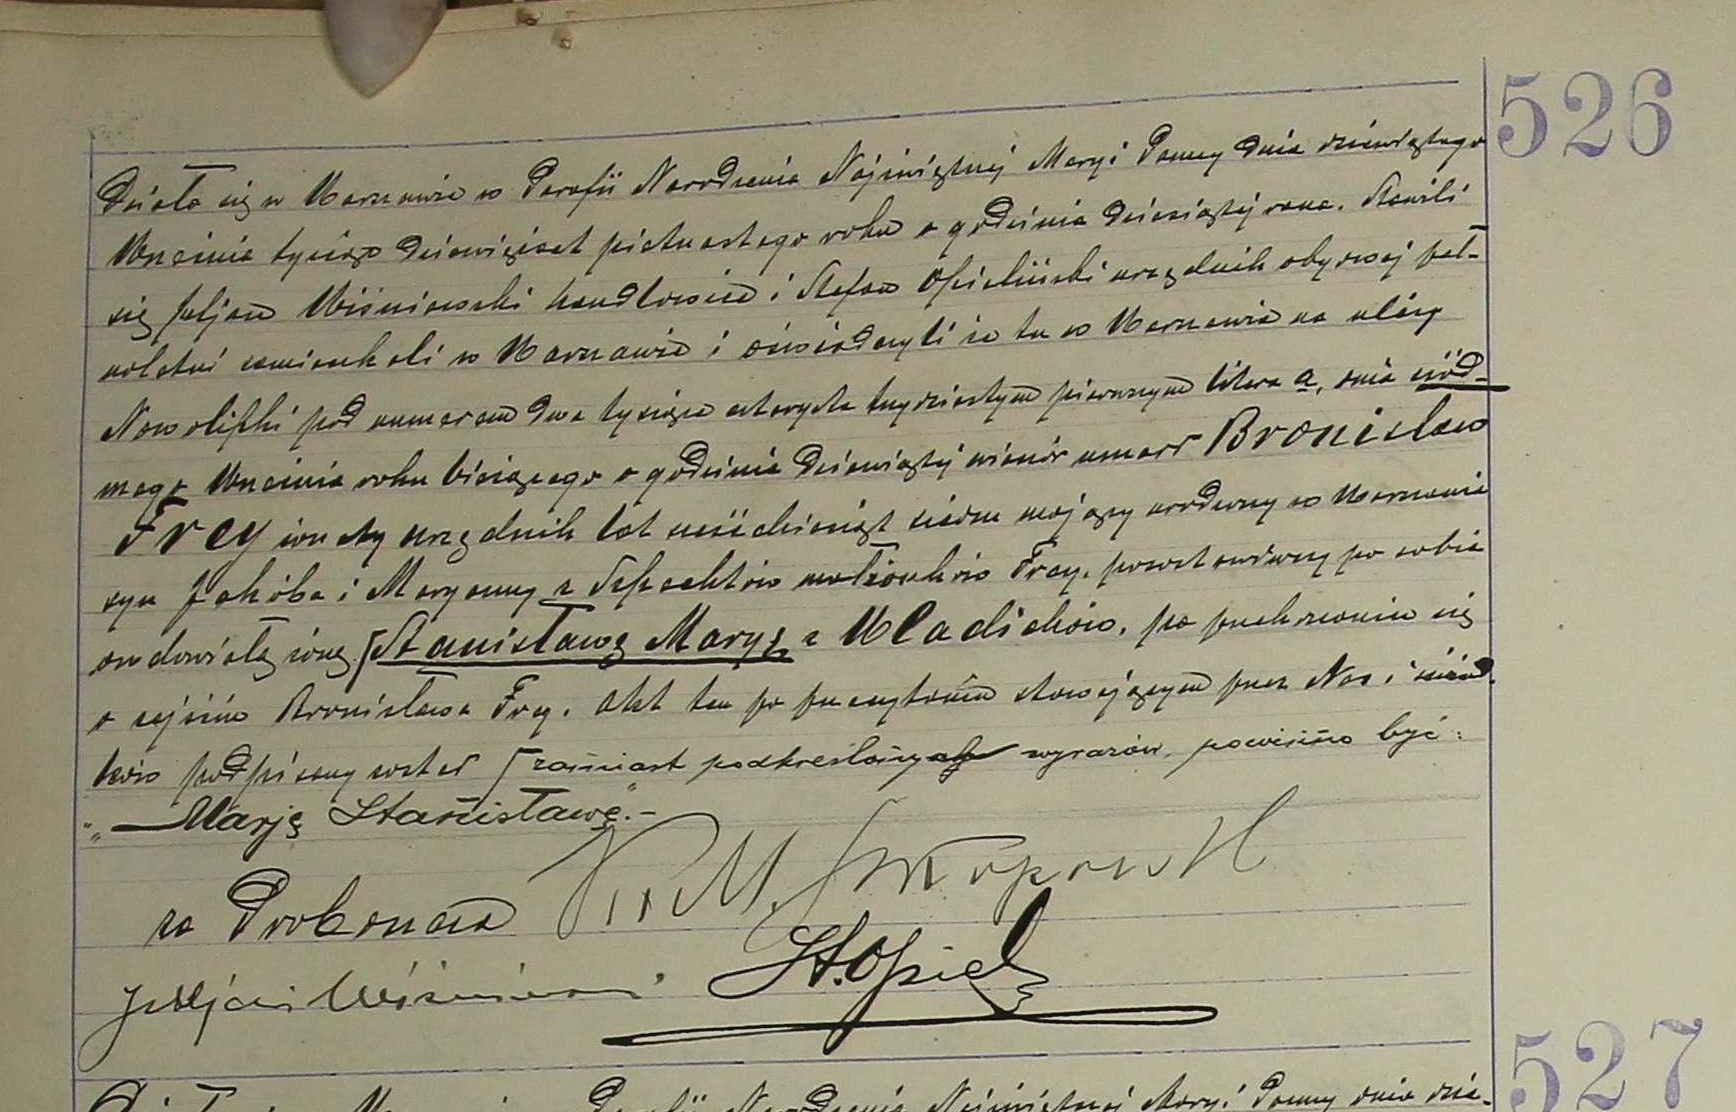 526
Działo się w Warszawie w Parafii Narodzenia Najświętszej Maryi Panny dnia dziewiątego
Września tysiąc dziewięćset piętnastego roku o godzinie dziesiątej rano. Stawili
się Juljan Wiśniewski handlowiec i Stefan Opieliński urzędnik obydwaj peł-
noletni zamieszkali w Warszawie i oświadczyli że tu w Warszawie na ulicy
Nowolipki pod numerem dwa tysiące czterysta trzydziestym pierwszym litera a, dnia siód-
mego Września roku bieżącego o godzinie dziewiątej wieczór umarł Bronisław
Frey żonaty urzędnik lat sześćdziesiąt siedm mający urodzony w Warszawie
syn Jakóba i Maryanny z Szpechtów małżonków Frey, pozostawiwszy po sobie
owdowiałą żonę Stanisławę Maryę z Uladichów, po przekonaniu się
o zejściu Bronisława Frey. Akt ten po przeczytaniu stawającym przez Nas i świad-
ków podpisany został zamiast podkreślonych wyrazów, powinno być:
„Marję Stanisławę”.-
za Proboszcza
Juljan Wiśniewski St. Opiel
527
Parafii Narodzenia Najświętszej Maryi Panny dnia dzie-